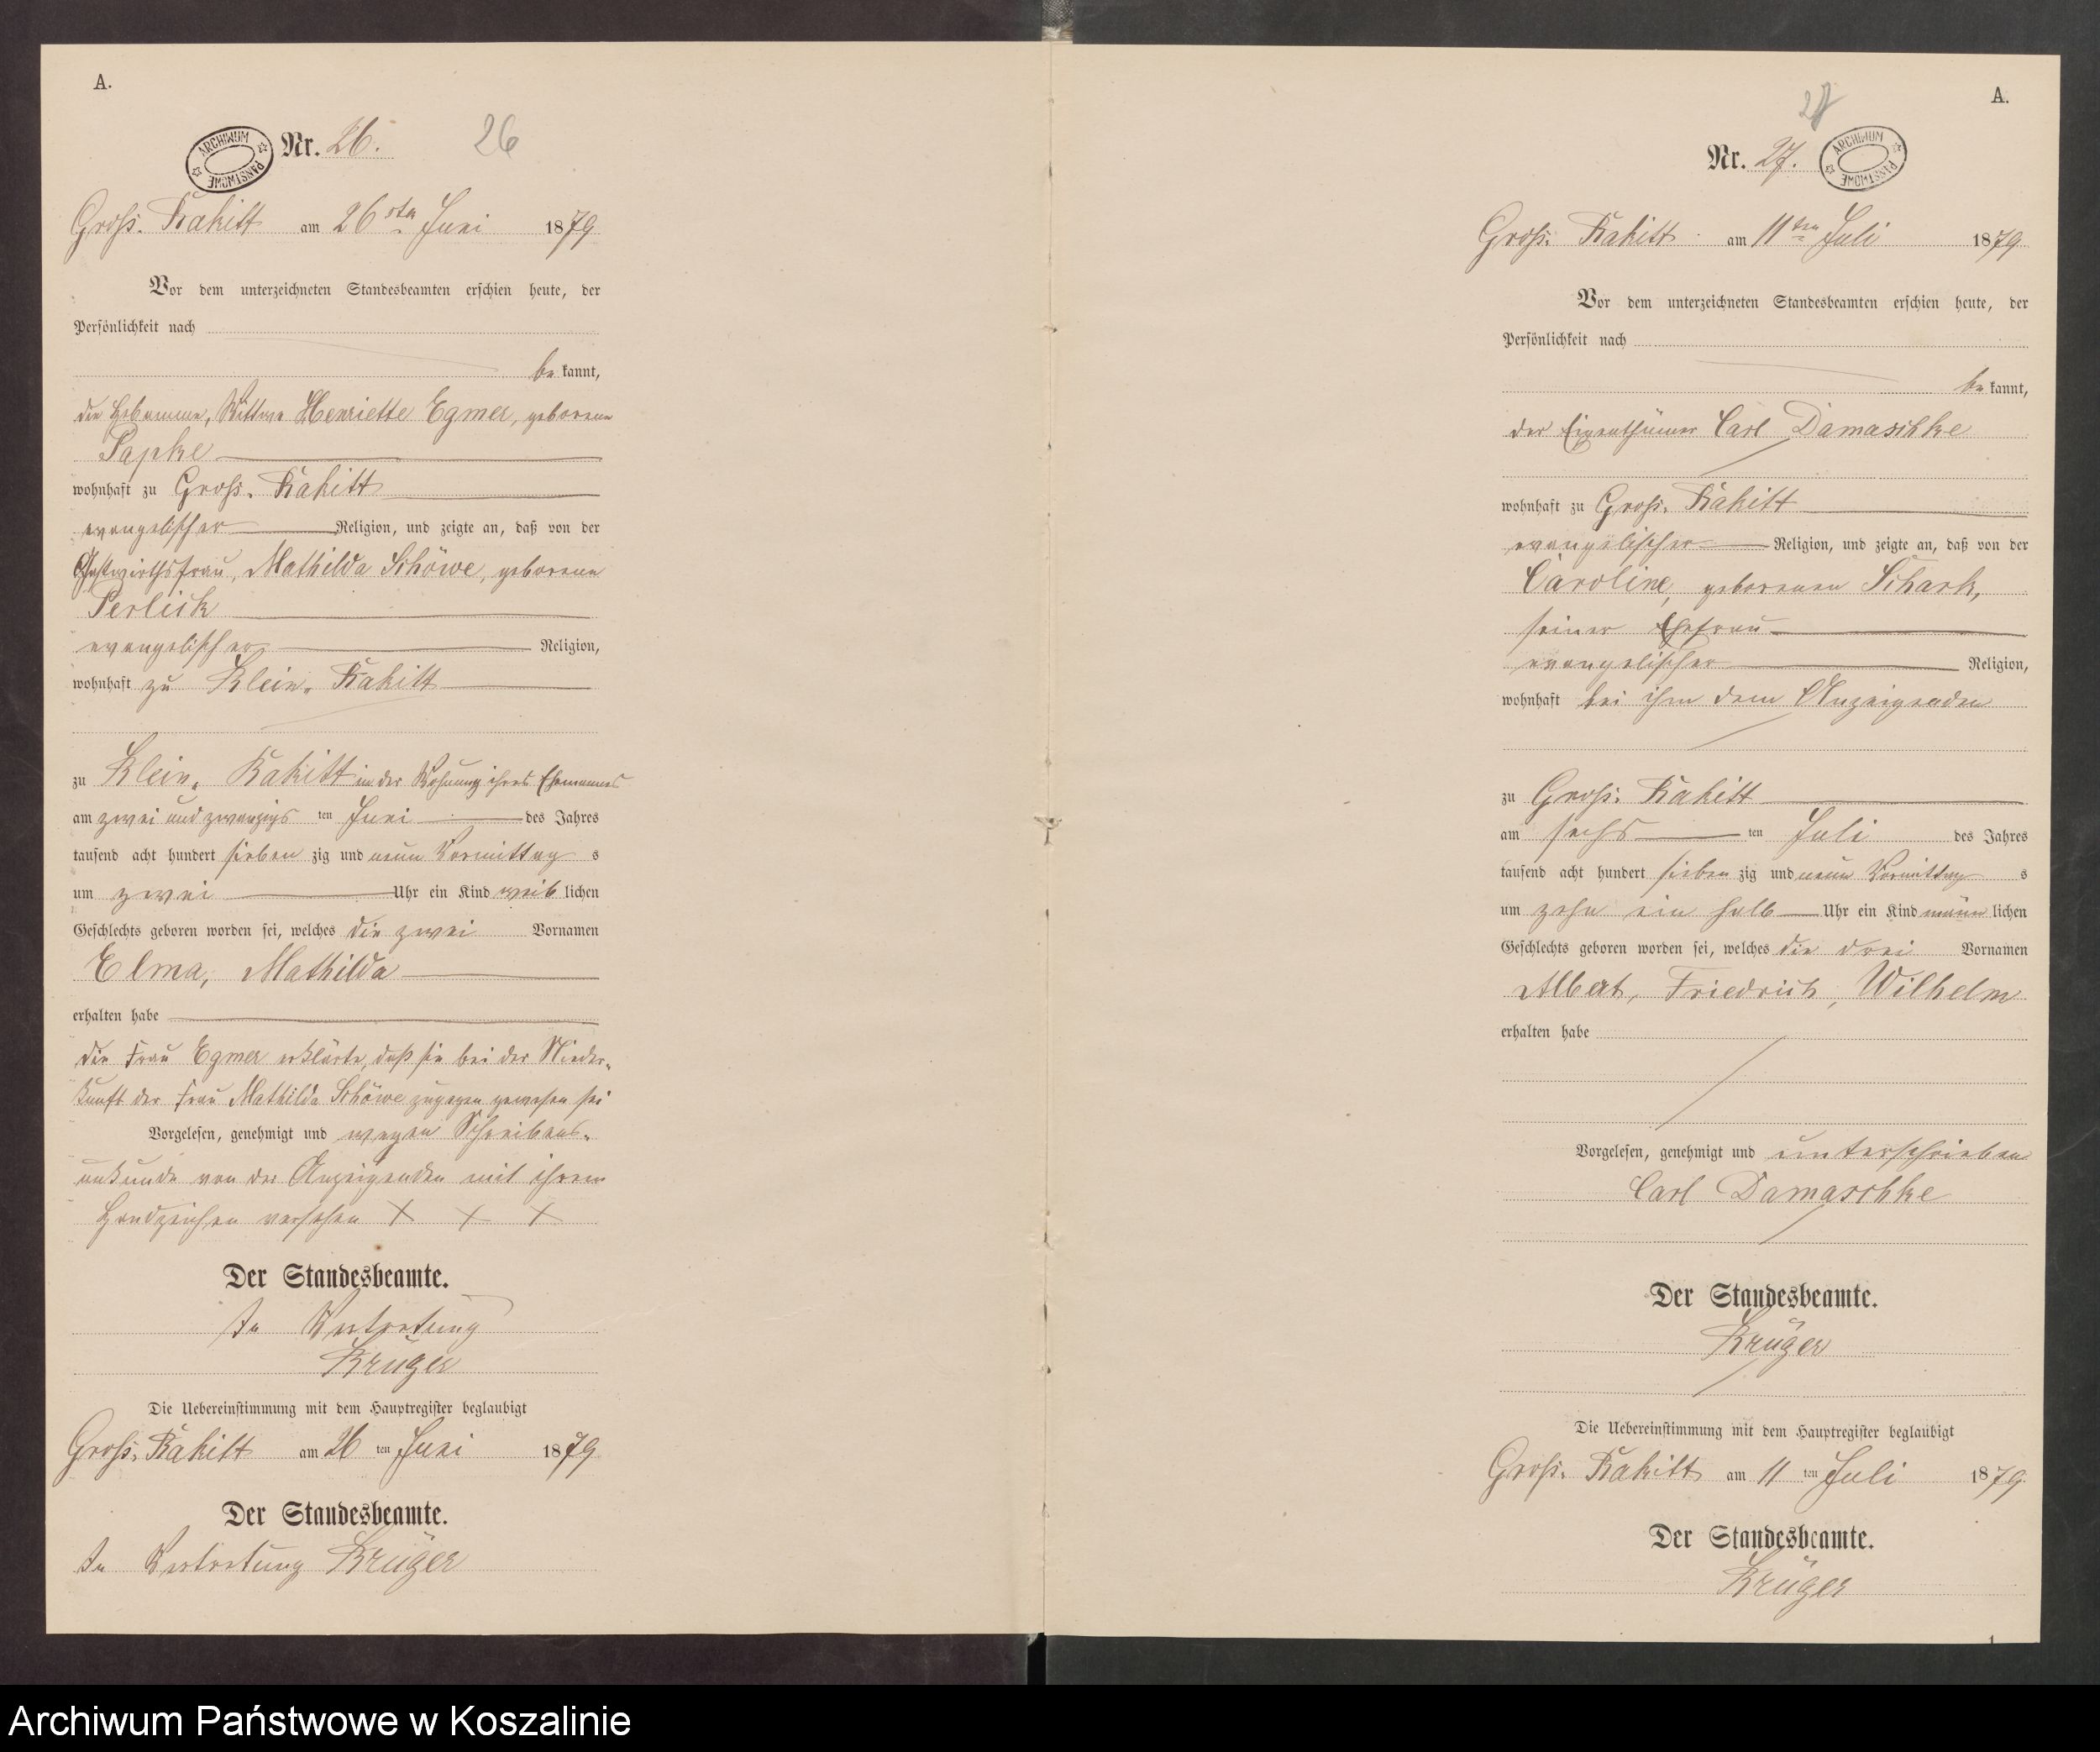 A.
ARCHIWUM PAŃSTWOWE
Nr. 26.
26
Groß. Rakitt am 26ten Juni 1879
Vor dem unterzeichneten Standesbeamten erschien heute, der
Persönlichkeit nach
bekannt,
die Hebamme, Wittwe Henriette Egmer, geborene
Papke
wohnhaft zu Groß. Rakitt
evangelischer Religion, und zeigte an, daß von der
Gastwirthsfrau, Mathilda Schöwe, geborene
Perlick
evangelischer Religion,
wohnhaft zu Klein. Rakitt
zu Klein. Rakitt in der Wohnung ihres Ehemannes
am zwei und zwanzigs ten Juni des Jahres
tausend acht hundert sieben zig und neun Vormittag s
um zwei Uhr ein Kind weiblichen
Geschlechts geboren worden sei, welches die zwei Vornamen
Elma, Mathilda
erhalten habe
die Frau Egmer erklärte, daß sie bei der Nieder-
kunft der Frau Mathilda Schöwe zugegen gewesen sei
Vorgelesen, genehmigt und wegen Schreibens-
unkunde von der Anzeigenden mit ihrem
Handzeichen versehen X X X
Der Standesbeamte.
In Vertretung
Krüger
Die Uebereinstimmung mit dem Hauptregister beglaubigt
Groß. Rakitt am 26 ten Juni 1879
Der Standesbeamte.
In Vertretung Krüger
A.
27
Nr. 27.
ARCHIWUM PAŃSTWOWE
Groß. Rakitt am 11ten Juli 1879
Vor dem unterzeichneten Standesbeamten erschien heute, der
Persönlichkeit nach
bekannt,
der Eigenthümer Carl Damaschke
wohnhaft zu Groß. Rakitt
evangelischer Religion, und zeigte an, daß von der
Caroline, geborenen Schark,
seiner Ehefrau
evangelischer Religion,
wohnhaft bei ihm dem Anzeigenden
zu Groß. Rakitt
am sechs ten Juli des Jahres
tausend acht hundert sieben zig und neun Vormittag s
um zehn ein halb Uhr ein Kind männlichen
Geschlechts geboren worden sei, welches die drei Vornamen
Albert, Friedrich, Wilhelm
erhalten habe
Vorgelesen, genehmigt und unterschrieben
Carl Damaschke
Der Standesbeamte.
Krüger
Die Uebereinstimmung mit dem Hauptregister beglaubigt
Groß. Rakitt am 11 ten Juli 1879.
Der Standesbeamte.
Krüger
Archiwum Państwowe w Koszalinie